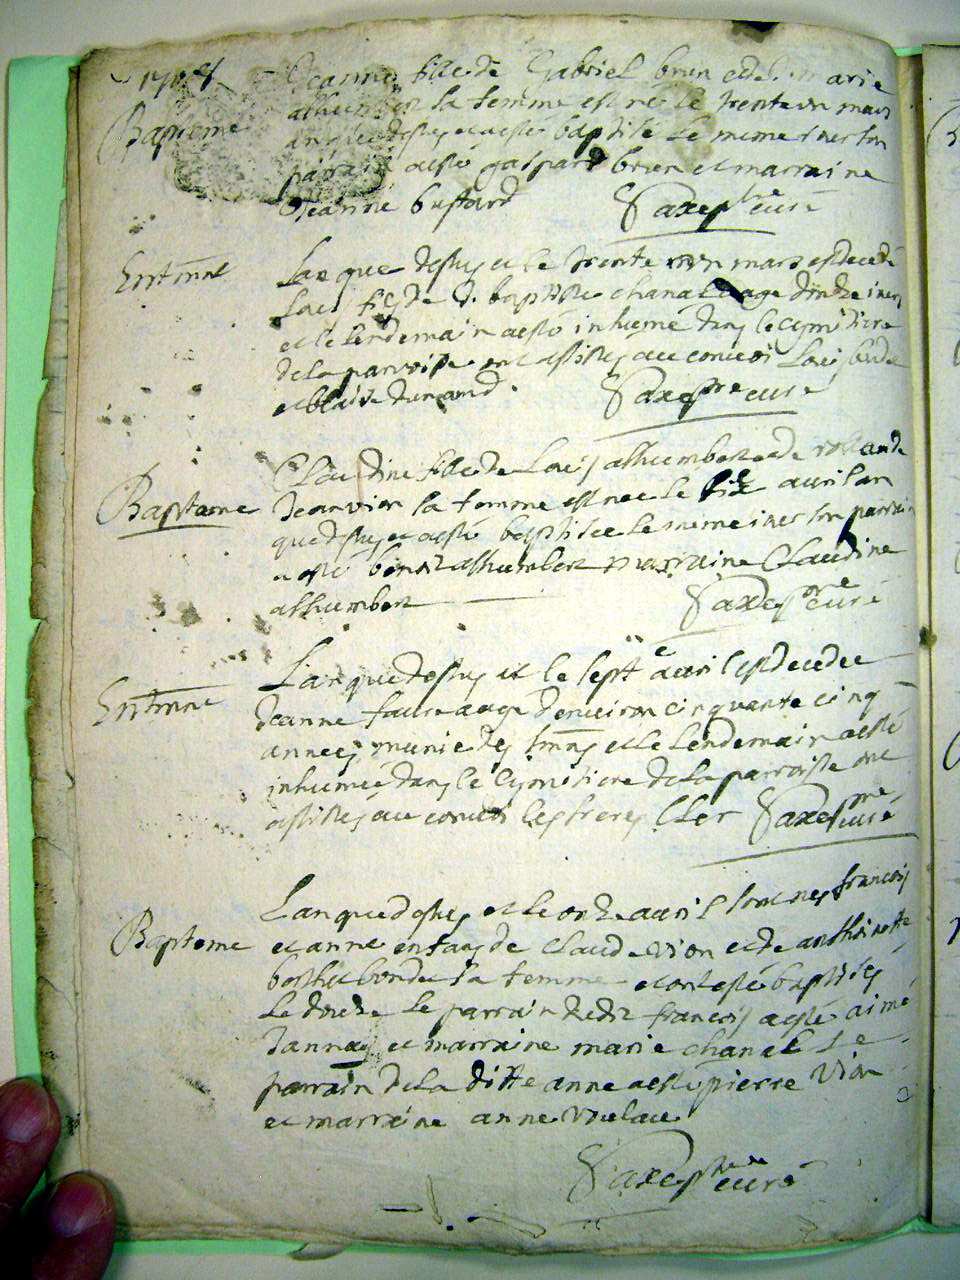 Bapteme
Jeanne fille de Gabriel brun et de marie
la femme est née le trente un mars
baptisé le mime iour son
parrain a esté gaspard brun et marraine
Jeanne bustard Saxe ptre curé
Lan que dessus et le trente un mars est decedé
Loui fils de J. baptiste chanal age
et le lendemain a esté inhumé dans le cymitiere
de la parroisse ont assistes au convoi Loui
et blaise dunand. Saxe pre curé
Bapteme
Claudine fille de Loui alhumbert et de rolande
Janvion la femme est nee le six auril an
que dessus et a esté baptisee le mime iour son parrain
a esté benoit alhumbert marraine Claudine
alhumbert Saxe pre curé
Lan que dessus et le sept auril est decedee
Jeanne faure aage denuiron cinquante cinq
annees, munie des et le lendemain a esté
inhumée dans le cymitiere de la parroisse ont
assistes au convoi les freres Cler Saxe pre curé
Bapteme
Lan que dessus et le onze auril sont nes francois
et anne enfans de claude vion et de anthoinette
la femme et ont esté baptises
le douze le parrain dudit francois a esté aimé
Janna et marraine marie chanal Le
parrain de la ditte anne a esté pierre vion
et marraine anne
Saxe ptre curé